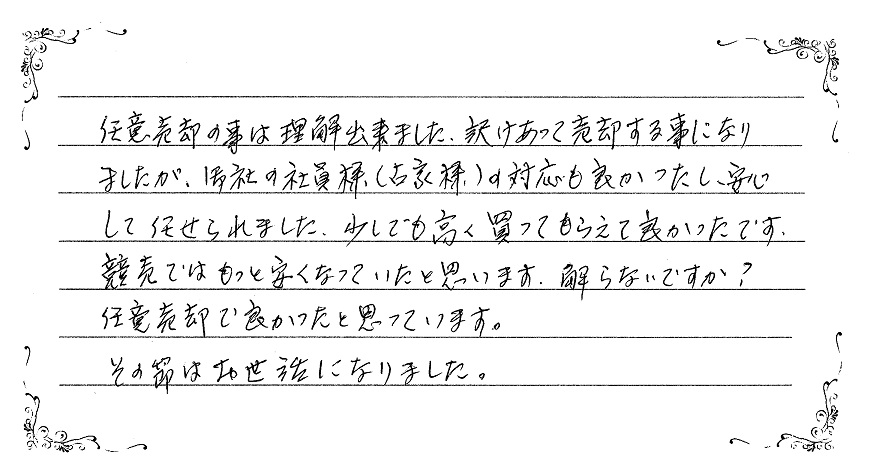 任意売却の事は理解出来ました、訳けあって売却する事になり
ましたが、御社の社員様(古家様)の対応も良かったし、安心
して任せられました、少しでも高く買ってもらえて良かったです、
競売ではもっと安くなっていたと思います、解らないですか?
任意売却で良かったと思っています。
その節はお世話になりました。